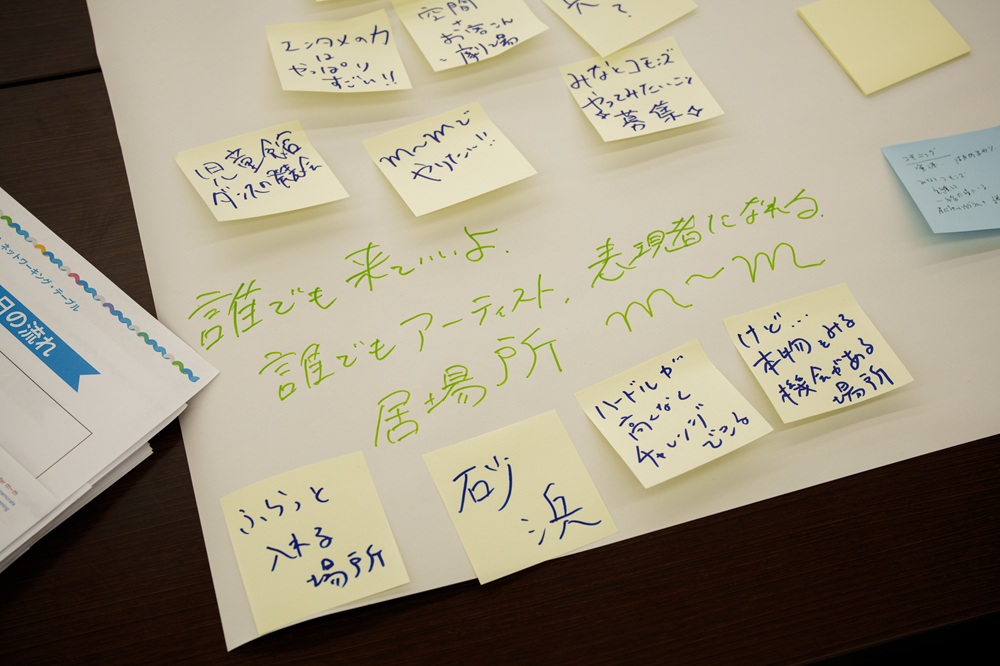 エンタメの力
は
やっぱり
すごい!!
空間
+
お客さん
劇場
?
みなとコモンズ
やってみたいこと
募集
児童館
ダンスの発表会
m〜mで
やりたい!!
誰でも 来ていいよ.
誰でもアーティスト、表現者になれる.
居場所 m〜m
ハードルが
高くなく
チャレンジ
できる
けど…
本物とみる
機会がある
場所
ふらっと
入れる
場所
砂
浜
ネットワーキング・テーブル
日の流れ